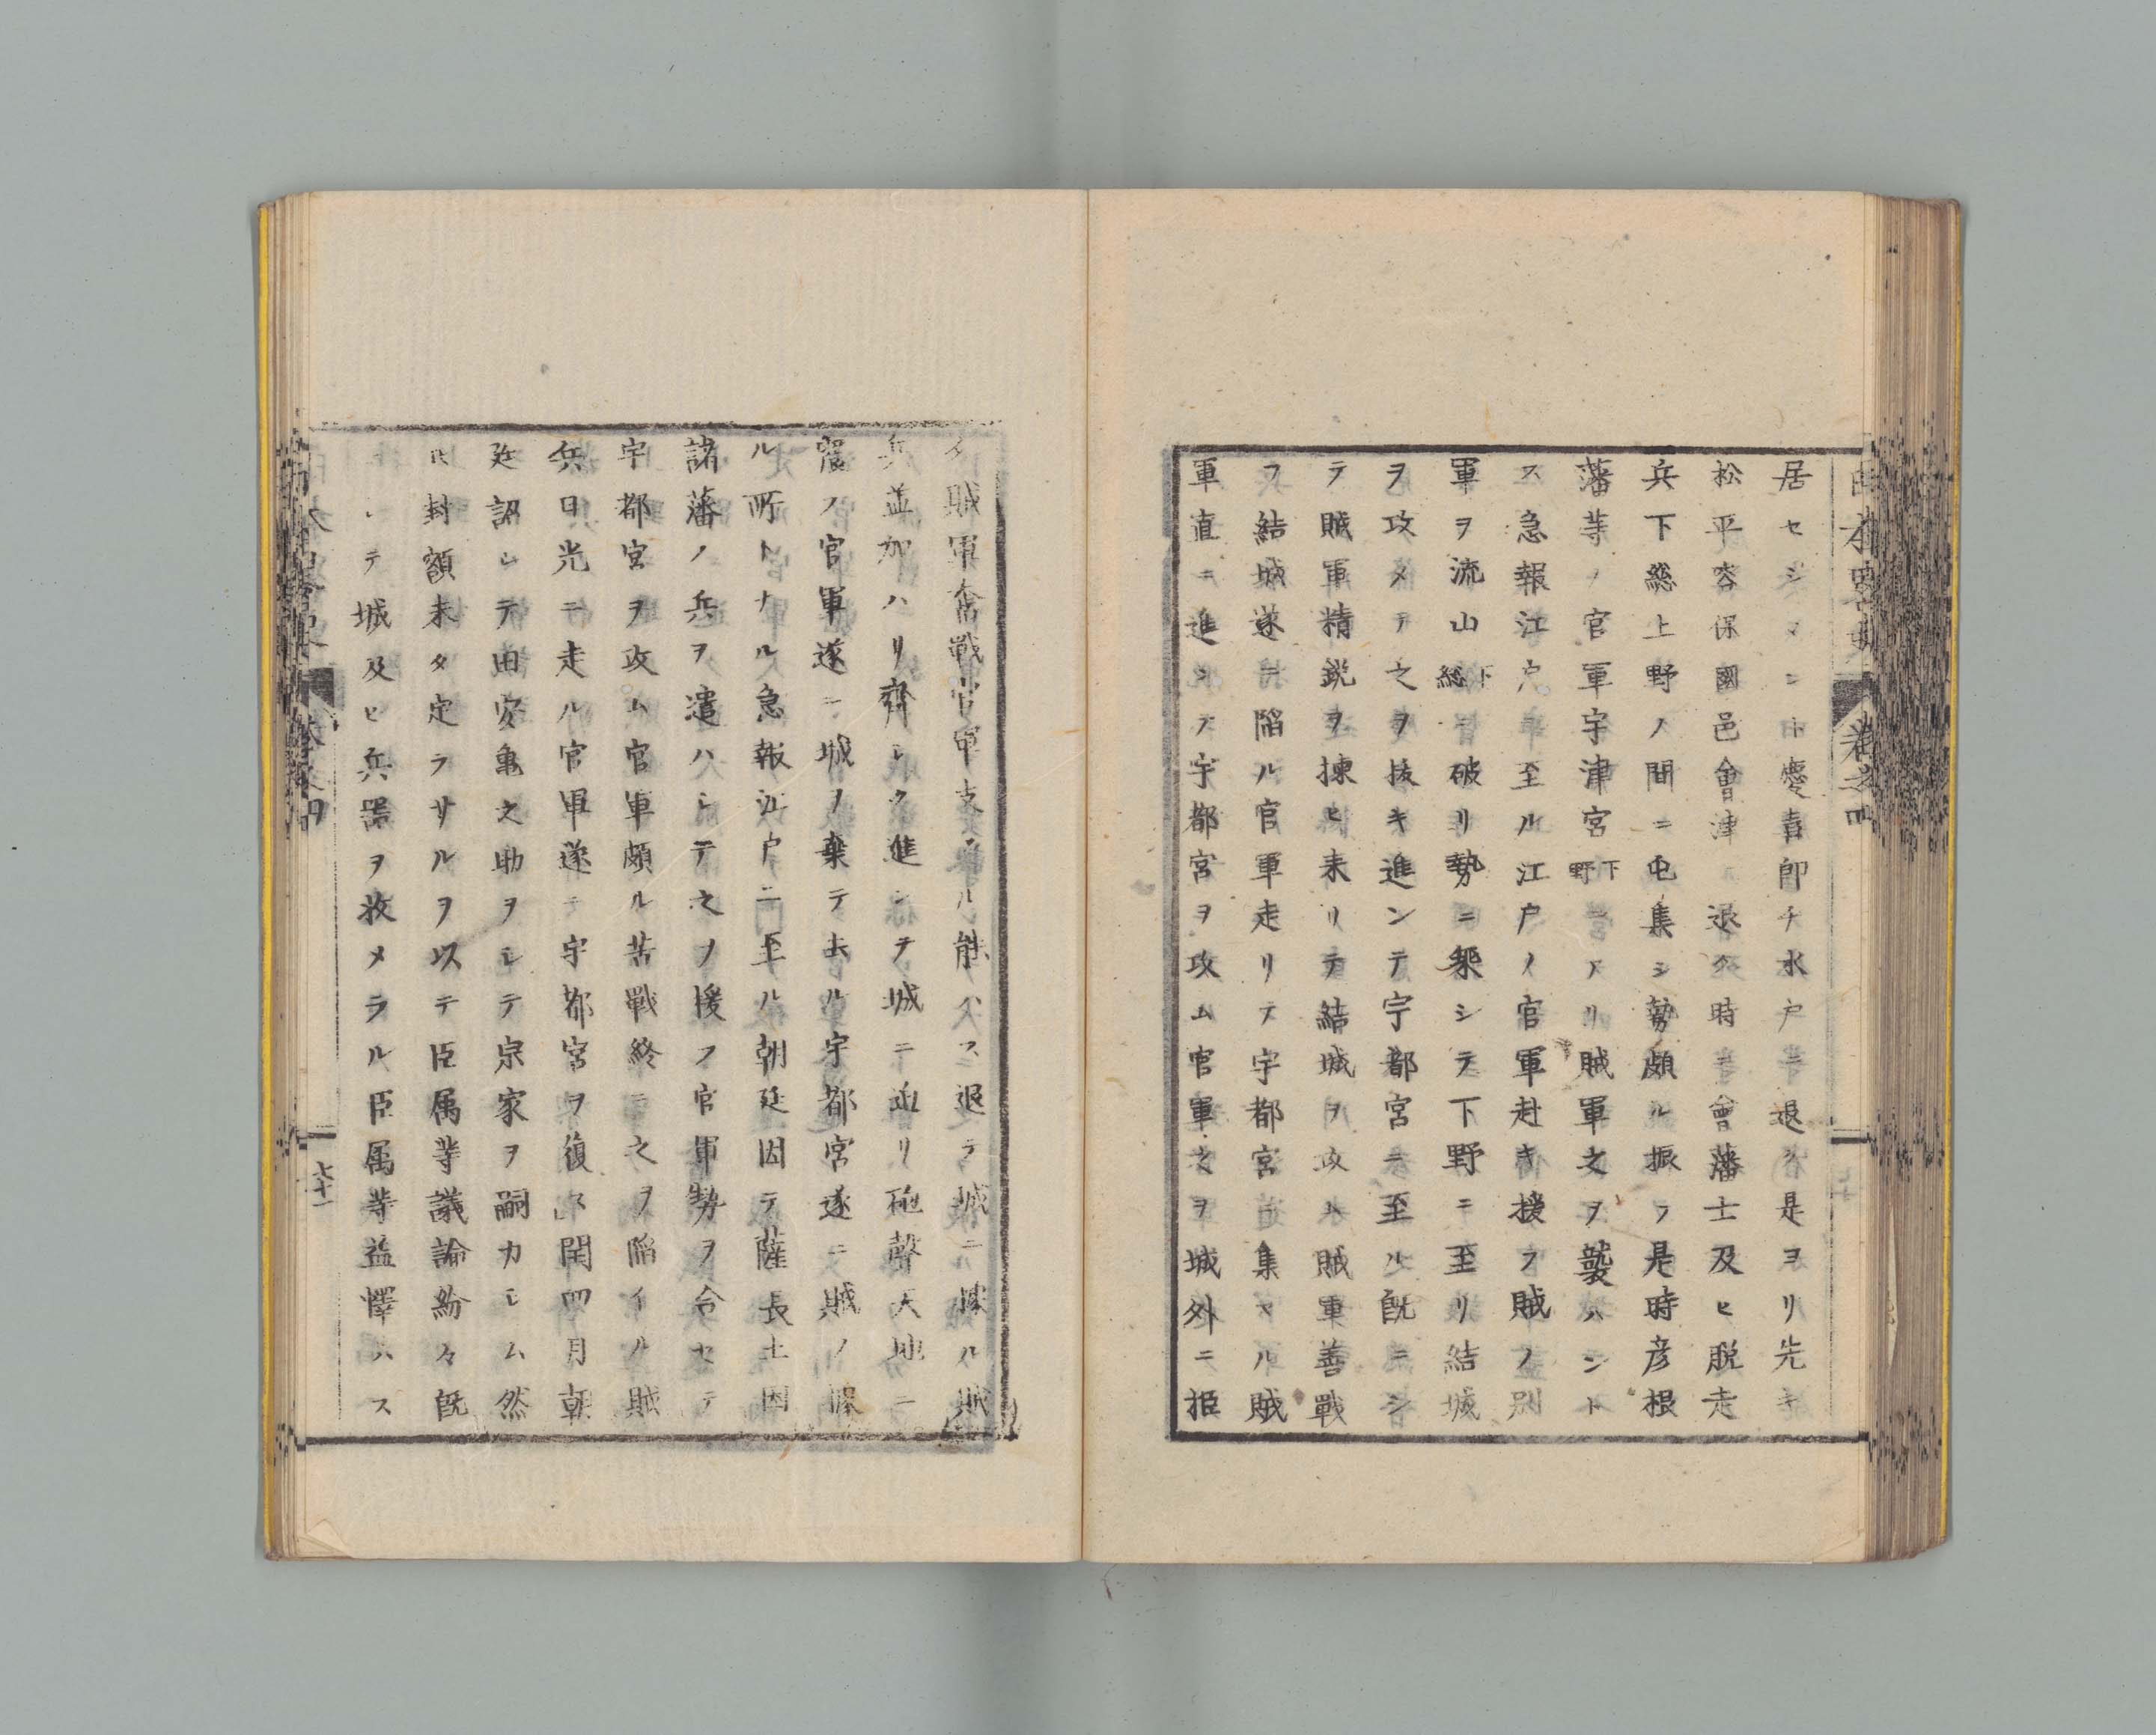 居セシメント慶喜卽チ水戸ニ退ク是ヨリ先キ
松平容保國邑會津ニ退ク時ニ會藩士及ヒ脱走
兵下総上野ノ間ニ屯集シ勢頗ル振フ是時彦根
藩等ノ官軍宇津宮下野ニアリ賊軍之ヲ襲ハント
ス急報江戸ニ至ル江戸ノ官軍赴キ援フ賊ノ別
軍ヲ流山下総ニ破リ勢ニ乗シテ下野ニ至リ結城
ヲ攻メテ之ヲ抜キ進ンテ宇都宮ニ至ル既ニシ
テ賊軍精鋭ヲ揀ヒ来リテ結城ヲ攻ム賊軍善戰
フ結城遂ニ陥ル官軍走リテ宇都宮ニ集マル賊
軍直ニ進ンテ宇都宮ヲ攻ム官軍之ヲ城外ニ拒
ク賊軍奮戰官軍支フル能ハス退テ城ニ據ル賊
兵並加ハリ齊シク進ンテ城ニ迫リ砲聲天地ニ
震フ官軍遂ニ城ヲ棄テ去ル宇都宮遂ニ賊ノ據
ル所トナル急報江戸ニ至ル朝廷因テ薩長土因
諸藩ノ兵ヲ遣ハシテ之ヲ援フ官軍勢ヲ合セテ
宇都宮ヲ攻ム官軍頗ル苦戰終ニ之ヲ陥イル賊
兵日光ニ走ル官軍遂ニ宇都宮ヲ復ス閏四月朝
廷詔シテ田安亀之助ヲシテ宗家ヲ嗣カシム然
ㇳモ封額未タ定ラサルヲ以テ臣属等議論紛々既
ニシテ城及ヒ兵器ヲ收メラル臣属等益懌ハス